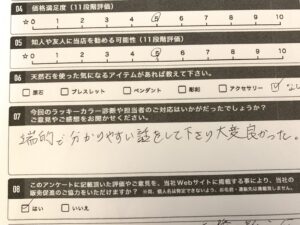 04 価格満足度(11段階評価)
☆ 0 1 2 3 4 5 6 7 8 9 10
05 知人や友人に当店を勧める可能性(11段階評価)
☆ 0 1 2 3 4 5 6 7 8 9 10
06 天然石を使った気になるアイテムがあれば教えて下さい。
□ 原石 □ ブレスレット □ ペンダント □ 彫刻 □ アクセサリー ☑ な
07 今回のラッキーカラー診断や担当者のご対応はいかがだったでしょうか?
ご意見やご感想をお聞かせください。
端的で分かりやすい話をして下さり大変良かった。
08 このアンケートに記載頂いた評価やご意見を、当社Webサイトに掲載する事により、当社の
販売促進のご協力をいただけますか? ※尚、個人名は特定できないよう、お名前・連絡先は掲載致しません。
☑ はい □ いいえ